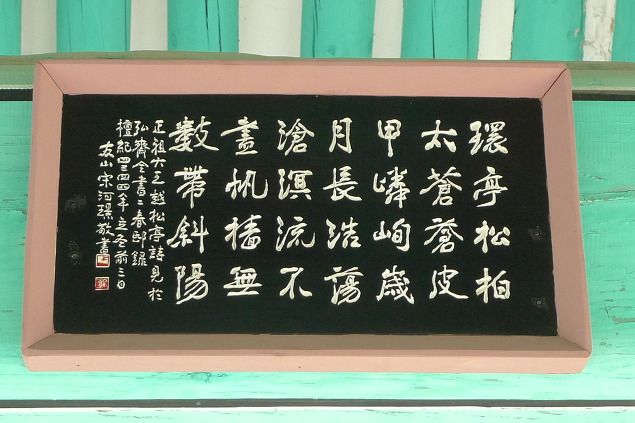 環亭松柏
太蒼蒼皮
甲嶙峋歲
月長浩蕩
滄溟流不
盡帆檣無
數帶斜陽
正祖大王越松亭詩見於
弘齋全書二春邸錄
檀紀四三四四年立冬前三日
友山宋河璟敬書